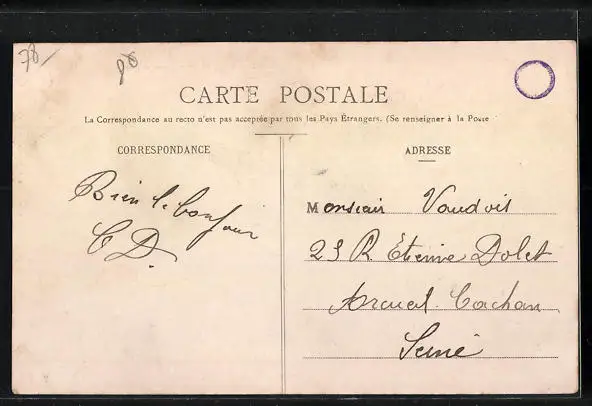 78
98
CARTE POSTALE
La Correspondance au recto n'est pas acceptée par tous les Pays Étrangers. (Se renseigner à la Poste
CORRESPONDANCE
ADRESSE
Bien le bonjour
C D.
Monsieur Vaudois
23 R Etienne Dolet
Arcueil. Cachan
Seine